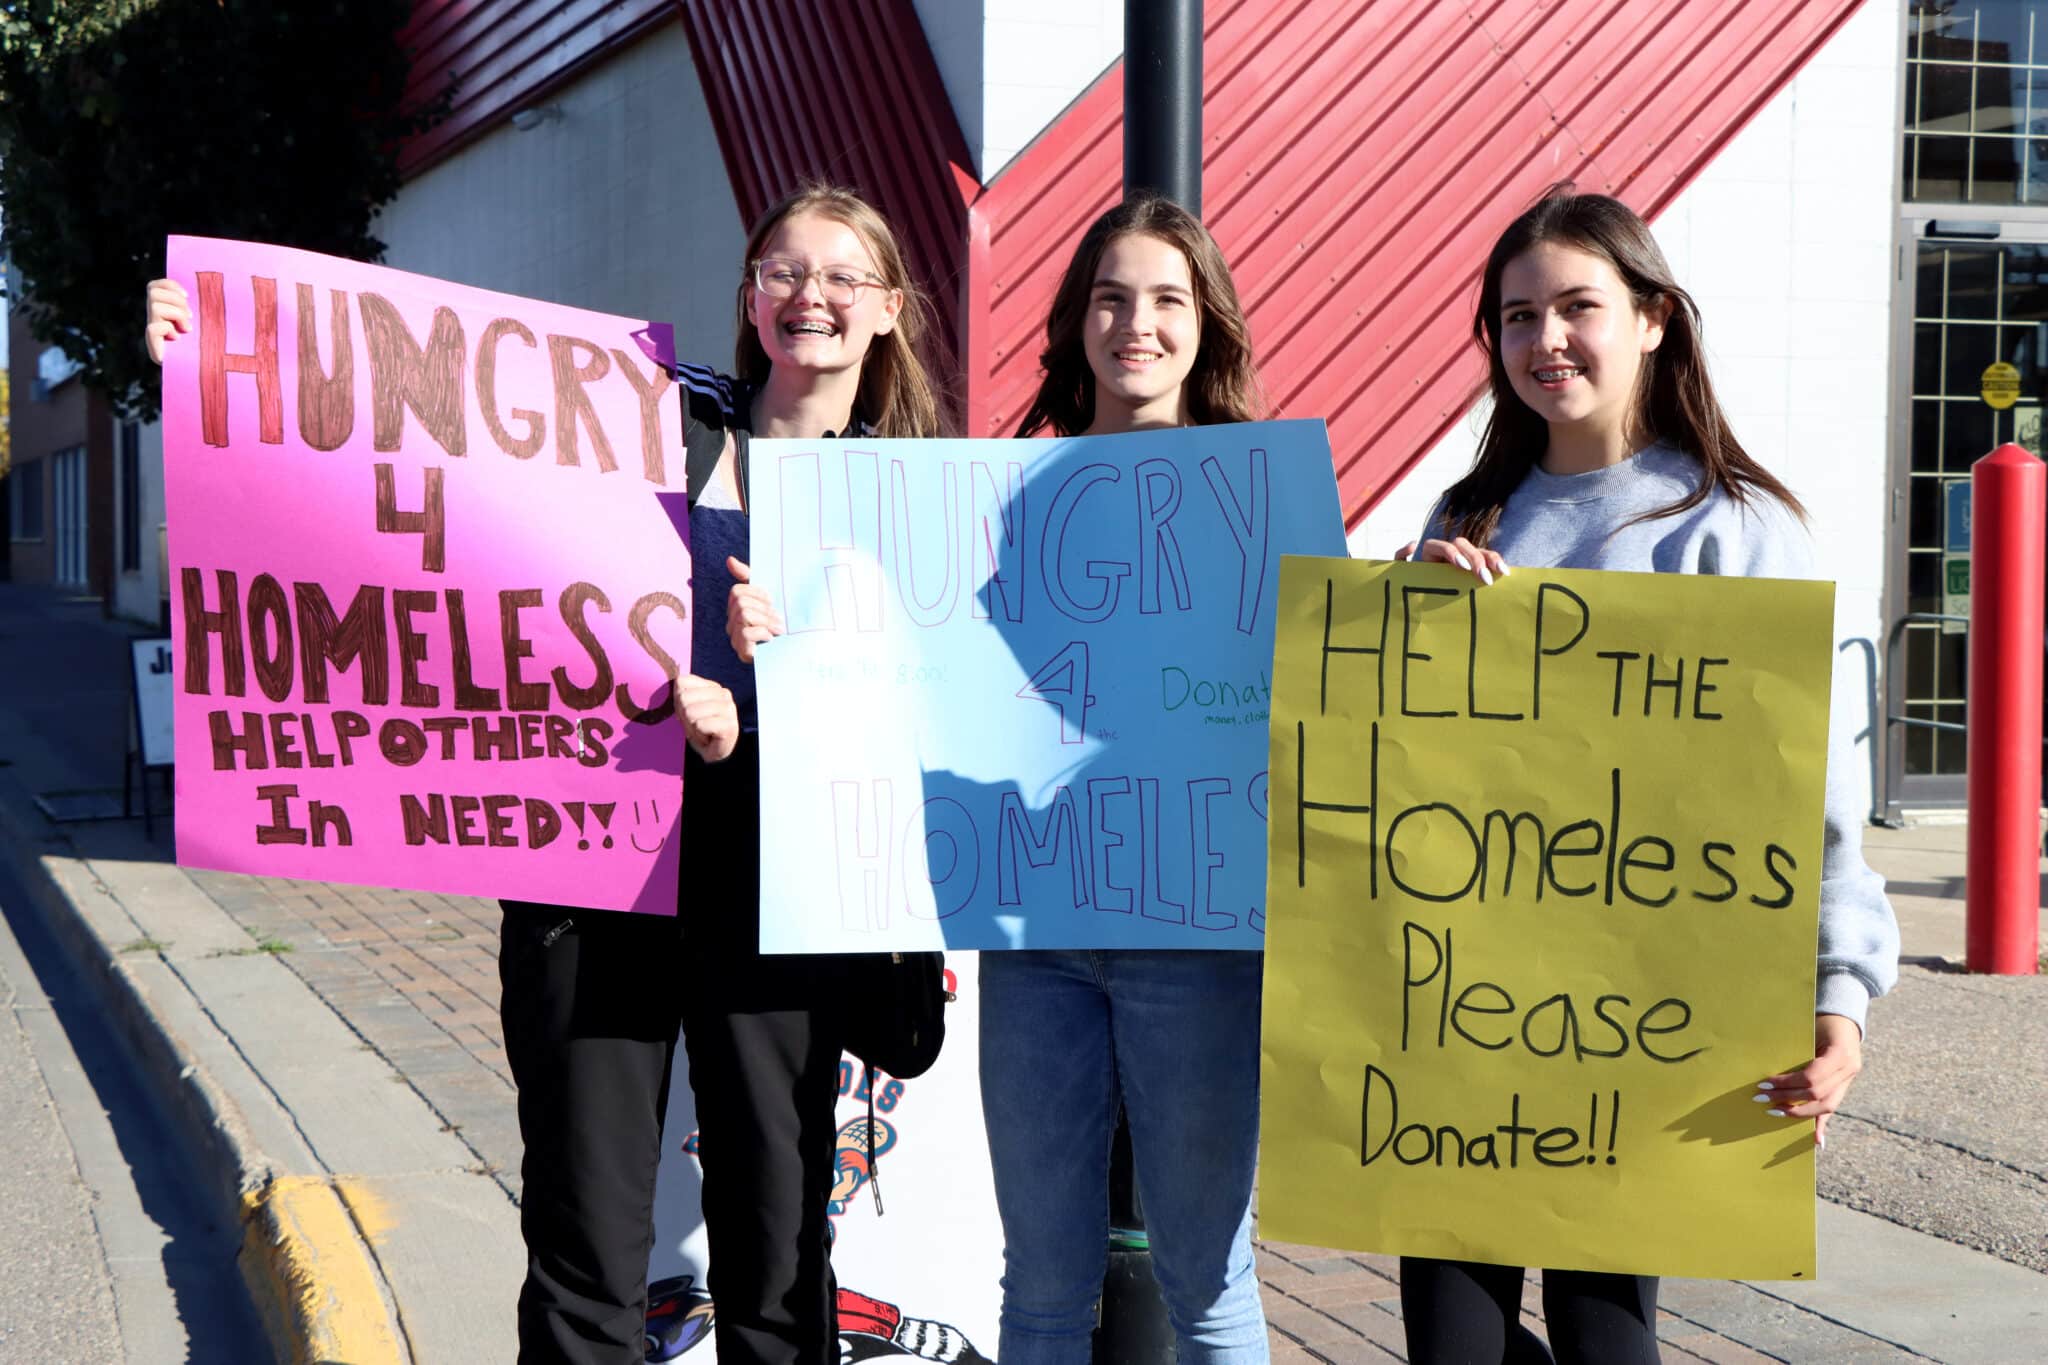 HUNGRY
4
HOMELESS
HELP OTHERS
In NEED!!
HUNGRY
8:00!
4
the
Donat
money, cloth
HOMELES
HELP THE
Homeless
Please
Donate!!
CAUTION